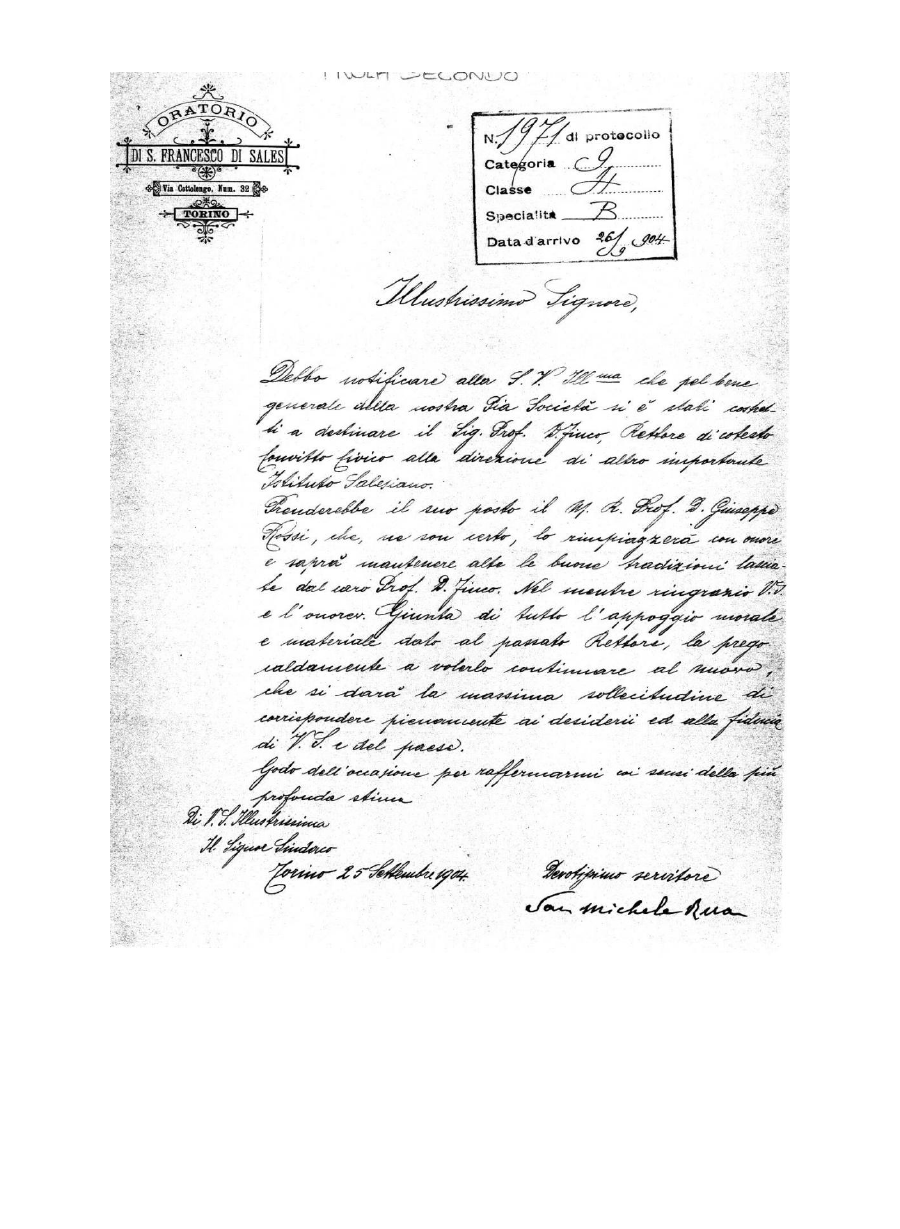 PAOLA SECONDO
ORATORIO
DI S. FRANCESCO DI SALES
Via Cottolengo, Num. 32
TORINO
N. 1971 di protocollo
Categoria 9
Classe 4
Specialità B
Data d'arrivo 26/9 904
Illustrissimo Signore,
Debbo notificare alla S. V. Ill.ma che pel bene
generale della nostra Pia Società si è stati costret-
ti a destinare il Sig. Prof. D. Fiuco, Rettore di cotesto
Convitto Civico alla direzione di altro importante
Istituto Salesiano.
Prenderebbe il suo posto il M. R. Prof. D. Giuseppe
Rossi, che, ne son certo, lo rimpiazzerà con onore
e saprà mantenere alte le buone tradizioni lascia-
te dal caro Prof. D. Fiuco. Nel mentre ringrazio V. S.
e l'onorev. Giunta di tutto l'appoggio morale
e materiale dato al passato Rettore, la prego
caldamente a volerlo continuare al nuovo,
che si darà la massima sollecitudine di
corrispondere pienamente ai desiderii ed alla fiducia
di V. S. e del paese.
Godo dell'occasione per raffermarmi coi sensi della più
profonda stima
Di V. S. Illustrissima
Il Signor Sindaco
Torino 25 Settembre 1904.
Devotissimo servitore
Sac Michele Rua